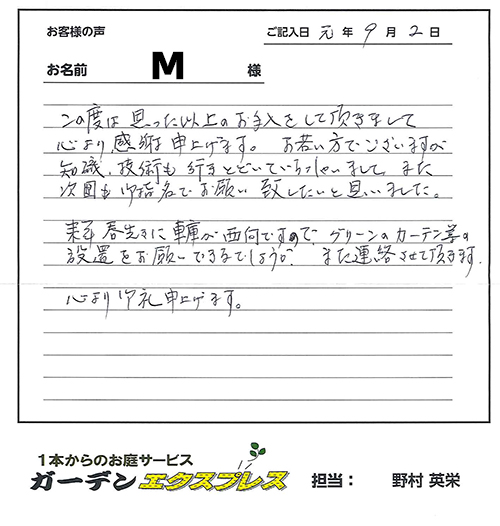 お客様の声
ご記入日 元 年 9 月 2 日
お名前 M 様
この度は思った以上のお手入をして頂きまして
心より感謝申上げます。 お若い方でございますが
知識、技術も行きとどいていらっしゃいまして、また
次回も御指名でお願い致したいと思いました。
来年春先に車庫が西向ですので、グリーンのカーテン等の
設置をお願いできるでしょうか? また連絡させて頂きます。
心より御礼申上げます。
1本からのお庭サービス
ガーデンエクスプレス 担当： 野村 英栄